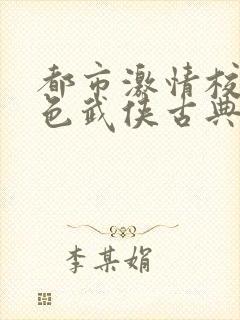 都市激情校
色武侠古典
李某娟